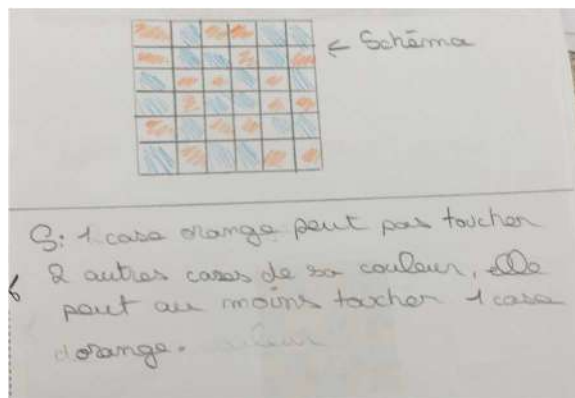 ← Schéma
S: 1 case orange peut pas toucher
2 autres cases de sa couleur, elle
peut au moins toucher 1 case
orange.